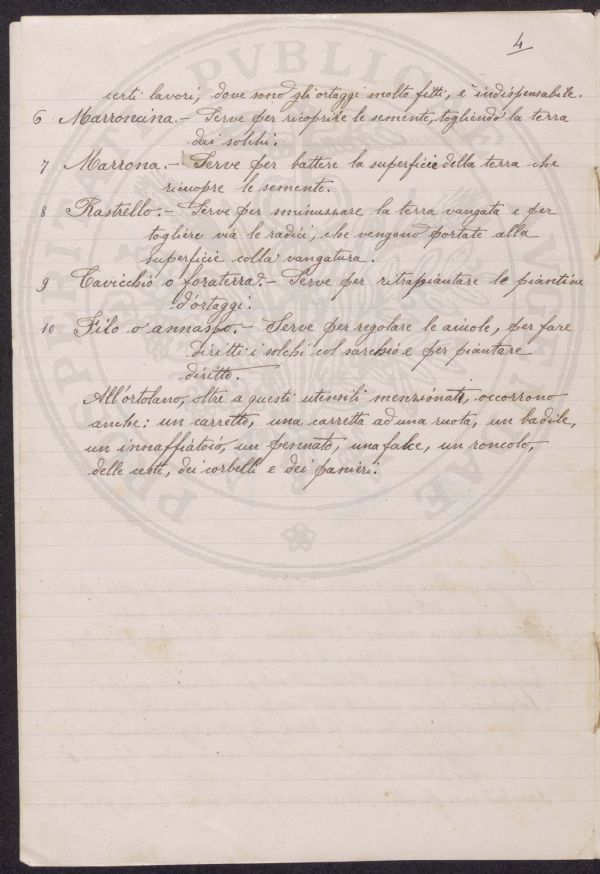 4
certi lavori, dove sono gli ortaggi molto fitti, è indispensabile.
6 Marroncina.- Serve per ricoprire le semente, togliendo la terra
dai solchi.
7 Marrona.- Serve per battere la superficie della terra che
ricuopre le semente.
8 Rastrello.- Serve per sminuzzare la terra vangata e per
togliere via le radici, che vengono portate alla
superficie colla vangatura.
9 Cavicchio o foraterra.- Serve per ritrapiantare le piantine
d'ortaggi.
10 Filo o annaspo.- Serve per regolare le aiuole, per fare
diritti i solchi col sarchio e per piantare
diritto.
All'ortolano, oltre a questi utensili menzionati, occorrono
anche: un carretto, una carretta ad una ruota, un badile,
un innaffiatoio, un pennato, una falce, un roncolo,
delle ceste, dei corbelli e dei panieri.
PVBLICAE
PROSPERITATIS